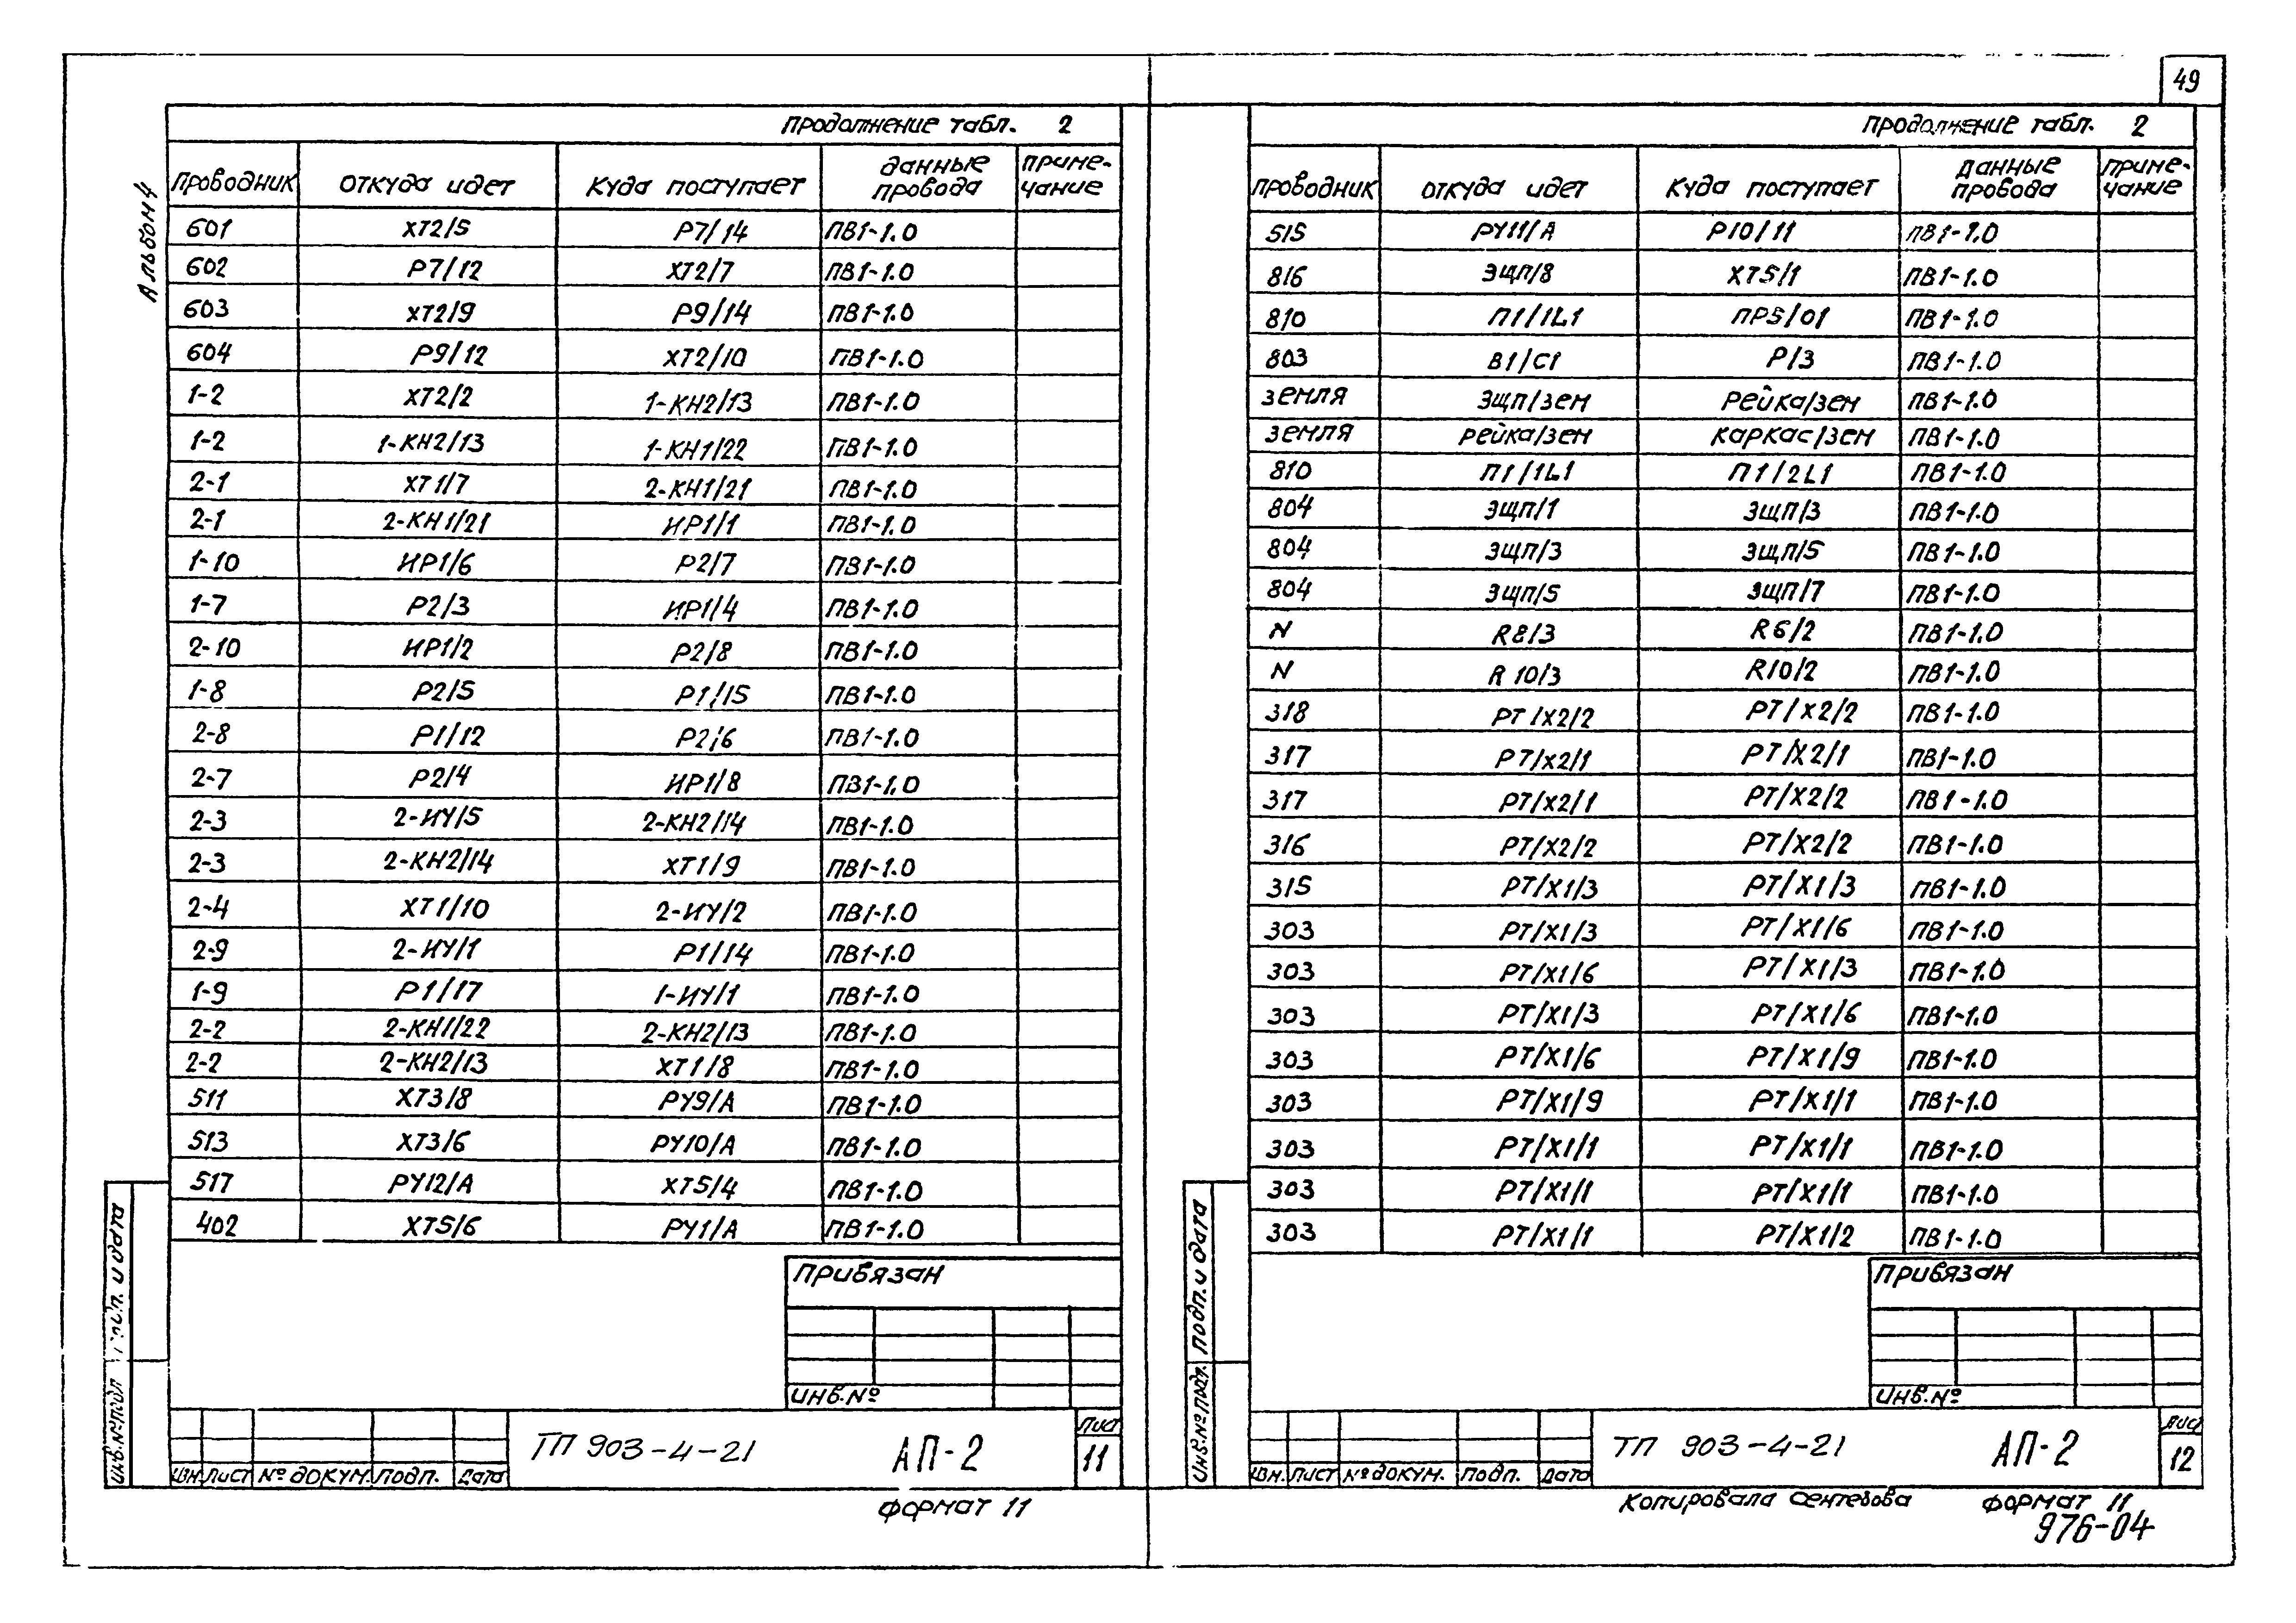 49
Альбом 4
Продолжение табл. 2
Проводник Откуда идет Куда поступает Данные провода Примечание
601 ХТ2/5 Р7/14 ПВ1-1.0
602 Р7/12 ХТ2/7 ПВ1-1.0
603 ХТ2/9 Р9/14 ПВ1-1.0
604 Р9/12 ХТ2/10 ПВ1-1.0
1-2 ХТ2/2 1-КН2/13 ПВ1-1.0
1-2 1-КН2/13 1-КН1/22 ПВ1-1.0
2-1 ХТ1/7 2-КН1/21 ПВ1-1.0
2-1 2-КН1/21 ИР1/1 ПВ1-1.0
1-10 ИР1/6 Р2/7 ПВ1-1.0
1-7 Р2/3 ИР1/4 ПВ1-1.0
2-10 ИР1/2 Р2/8 ПВ1-1.0
1-8 Р2/5 Р1/15 ПВ1-1.0
2-8 Р1/12 Р2/6 ПВ1-1.0
2-7 Р2/4 ИР1/8 ПВ1-1.0
2-3 2-ИУ/5 2-КН2/14 ПВ1-1.0
2-3 2-КН2/14 ХТ1/9 ПВ1-1.0
2-4 ХТ1/10 2-ИУ/2 ПВ1-1.0
2-9 2-ИУ/1 Р1/14 ПВ1-1.0
1-9 Р1/17 1-ИУ/1 ПВ1-1.0
2-2 2-КН1/22 2-КН2/13 ПВ1-1.0
2-2 2-КН2/13 ХТ1/8 ПВ1-1.0
511 ХТ3/8 РУ9/А ПВ1-1.0
513 ХТ3/6 РУ10/А ПВ1-1.0
517 РУ12/А ХТ5/4 ПВ1-1.0
402 ХТ5/6 РУ1/А ПВ1-1.0
Привязан
Инв.№
Изм. Лист № докум. Подп. Дата
ТП 903-4-21 АП-2
Лист
11
Инв.№ подл. Подп. и дата
Формат 11
Продолжение табл. 2
Проводник Откуда идет Куда поступает Данные провода Примечание
515 РУ11/А Р10/11 ПВ1-1.0
816 ЭЩП/8 ХТ5/1 ПВ1-1.0
810 П1/1L1 ПР5/01 ПВ1-1.0
803 В1/С1 Р/3 ПВ1-1.0
Земля ЭЩП/зем Рейка/зем ПВ1-1.0
Земля Рейка/зем Каркас/зем ПВ1-1.0
810 П1/1L1 П1/2L1 ПВ1-1.0
804 ЭЩП/1 ЭЩП/3 ПВ1-1.0
804 ЭЩП/3 ЭЩП/5 ПВ1-1.0
804 ЭЩП/5 ЭЩП/7 ПВ1-1.0
N R8/3 R6/2 ПВ1-1.0
N R10/3 R10/2 ПВ1-1.0
318 РТ/Х2/2 РТ/Х2/2 ПВ1-1.0
317 РТ/Х2/1 РТ/Х2/1 ПВ1-1.0
317 РТ/Х2/1 РТ/Х2/2 ПВ1-1.0
316 РТ/Х2/2 РТ/Х2/2 ПВ1-1.0
315 РТ/Х1/3 РТ/Х1/3 ПВ1-1.0
303 РТ/Х1/3 РТ/Х1/6 ПВ1-1.0
303 РТ/Х1/6 РТ/Х1/3 ПВ1-1.0
303 РТ/Х1/3 РТ/Х1/6 ПВ1-1.0
303 РТ/Х1/6 РТ/Х1/9 ПВ1-1.0
303 РТ/Х1/9 РТ/Х1/1 ПВ1-1.0
303 РТ/Х1/1 РТ/Х1/1 ПВ1-1.0
303 РТ/Х1/1 РТ/Х1/1 ПВ1-1.0
303 РТ/Х1/1 РТ/Х1/2 ПВ1-1.0
Привязан
Инв.№
Изм. Лист № докум. Подп. Дата
ТП 903-4-21 АП-2
Лист
12
Инв.№ подл. Подп. и дата
Копировала Сентебова Формат 11
976-04